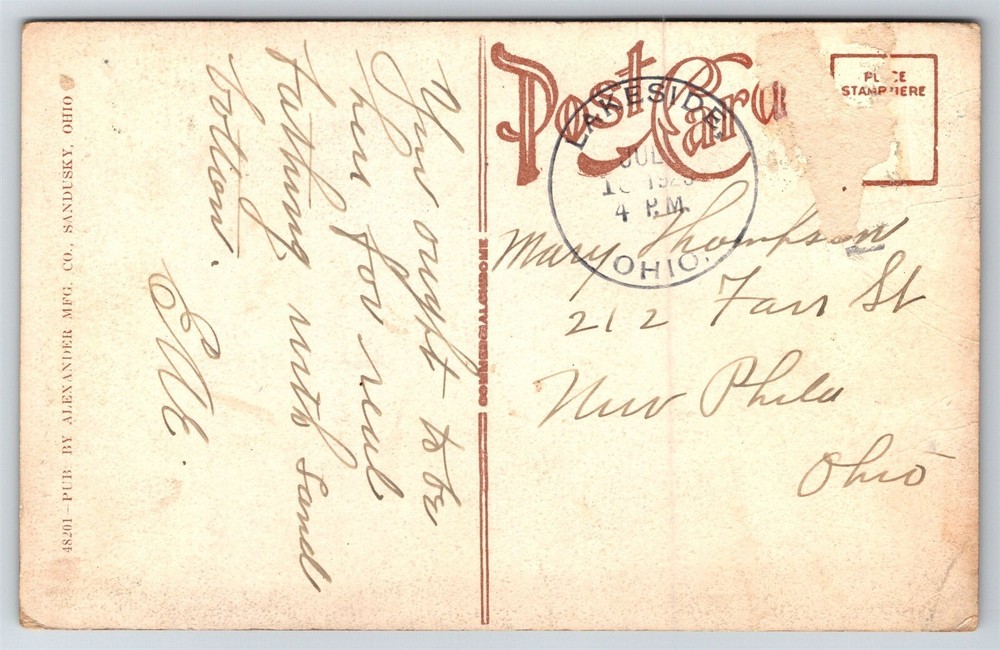 Post Card
PLACE
STAMP HERE
LAKESIDE,
JUL
4 P.M.
OHIO.
Mary Thompson
212 Farr St
New Phila
Ohio
You ought to be
here for real
bathing with sand
bottom.
COMMERCIALCHROME
48201–PUB BY ALEXANDER MFG. CO., SANDUSKY, OHIO